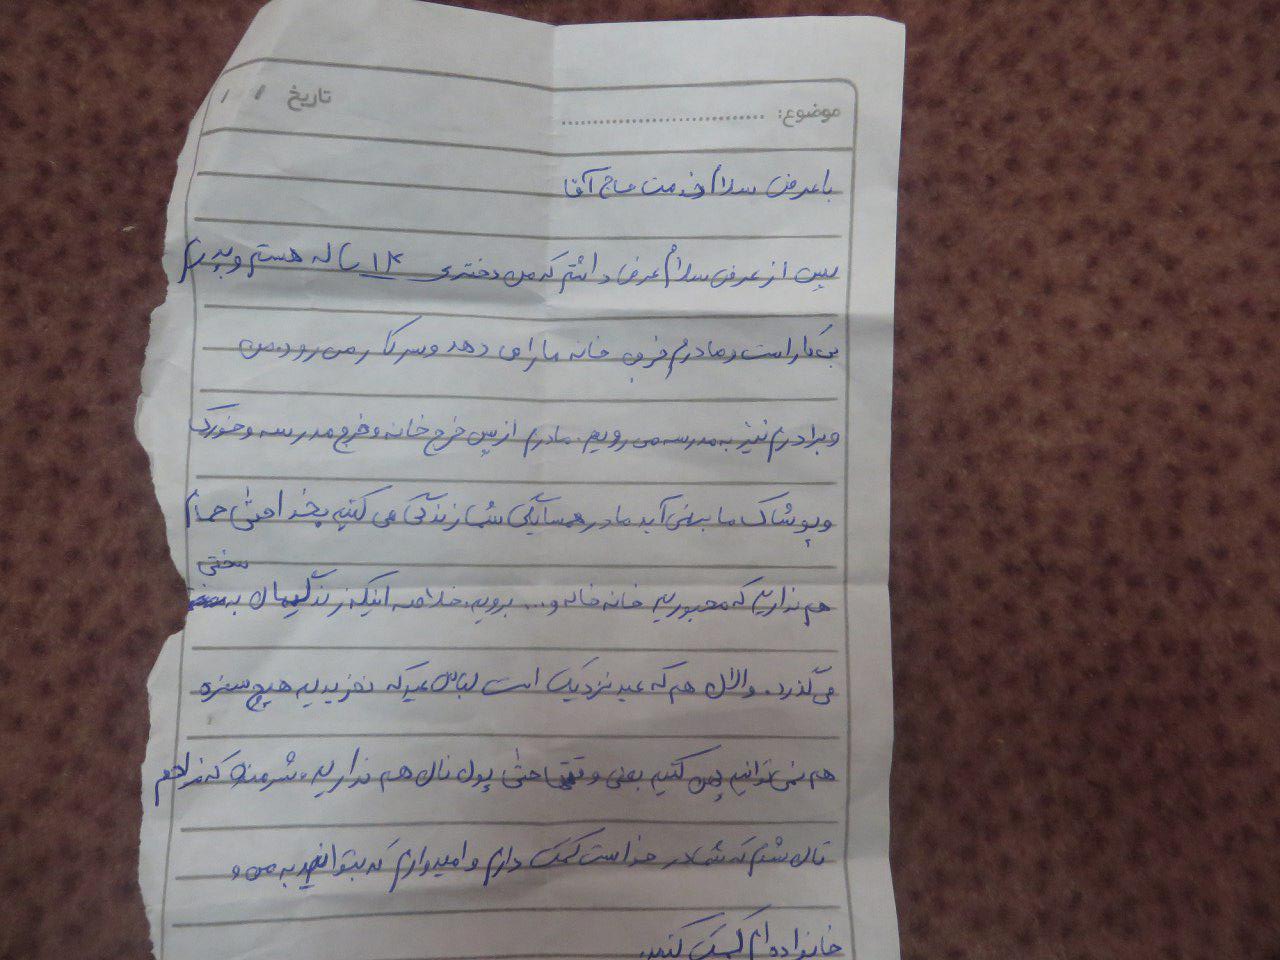 موضوع: ............................ تاریخ / /
با عرض سلام خدمت حاج آقا
پس از عرض سلام عرض داشتم که من دختری ۱۴ ساله هستم و پدرم
بی‌کار است و مادرم خرج خانه ما را می دهد و سرکار می رود. من
و برادرم نیز به مدرسه می رویم. مادرم از پس خرج خانه و خرج مدرسه و خوراک
و پوشاک ما برنمی آید ما در همسایگی شما زندگی می کنیم بخدا حتی حمام
سختی
هم نداریم که مجبوریم خانه خاله و... برویم. خلاصه اینکه زندگیمان به
می گذرد. و الان هم که عید نزدیک است لباس عید که نخریدیم هیچ سفره
هم نمی توانیم پهن کنیم بعضی وقتها حتی پول نان هم نداریم. شرمنده که مزاحم
تان شدم که شما در خواست کمک دارم و امیدوارم که بتوانید به من و
خانواده ام کمک کنید.